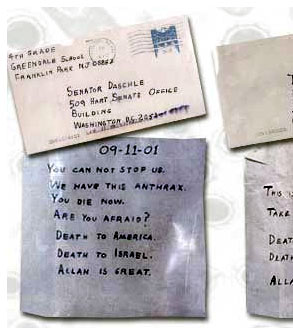 4TH GRADE
GREENDALE SCHOOL
FRANKLIN PARK NJ 08852
SENATOR DASCHLE
509 HART SENATE OFFICE
BUILDING
WASHINGTON D.C. 20510
09-11-01
YOU CAN NOT STOP US.
WE HAVE THIS ANTHRAX.
YOU DIE NOW.
ARE YOU AFRAID?
DEATH TO AMERICA.
DEATH TO ISRAEL.
ALLAH IS GREAT.
THIS
TAKE
DEAT
DEATH
ALLA